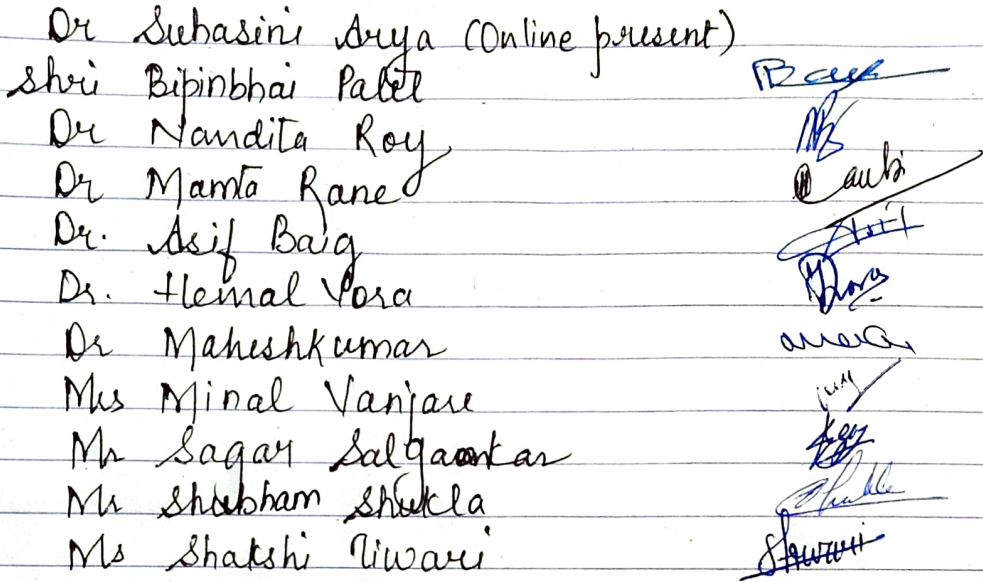 Dr Suhasini Arya (Online present)
Shri Bipinbhai Patel
Dr Nandita Roy
Dr Mamta Rane
Dr. Asif Baig
Dr. Hemal Vora
Dr Maheshkumar
Mrs Minal Vanjare
Mr Sagar Salgaonkar
Mr Shubham Shukla
Ms Shakshi Tiwari